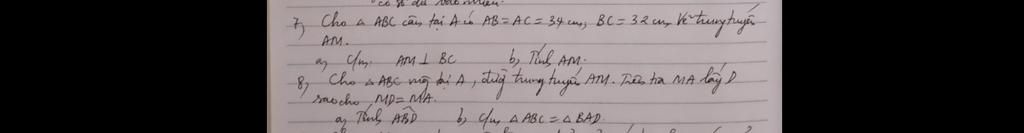 7) Cho △ ABC cân tại A có AB = AC = 34 cm, BC = 32 cm. Vẽ trung tuyến
AM.
a, C/m: AM ⊥ BC b, Tính AM.
8) Cho △ ABC vuông tại A, đường trung tuyến AM. Trên tia MA lấy D
sao cho MD = MA.
a, Tính ABD b, C/m △ ABC = △ BAD.